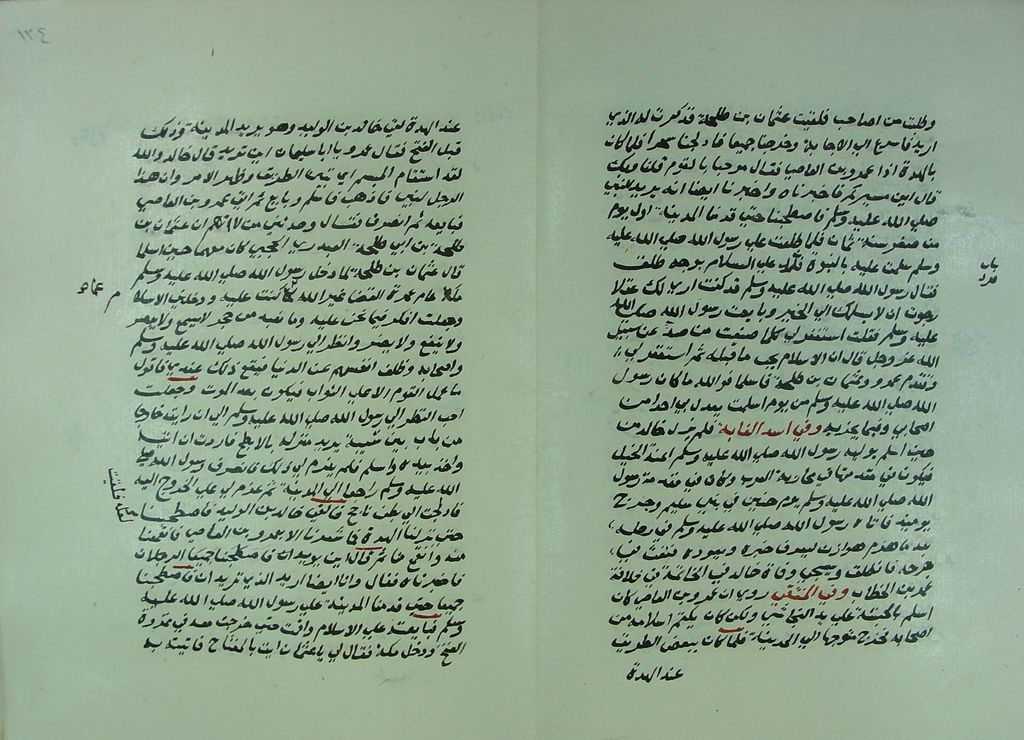 وقلت من اصاحب فلقيت عثمان بن طلحة فذكرت له الذي
اريد فاسرع الي الاجابة وخرجنا جميعا فادلجنا سحرا فلما كان
بالهدة اذا عمرو بن العاصي فقال مرحبا بالقوم قلنا وبك
قال اين مسيركم فاخبرناه واخبرنا ايضا انه يريد النبي
صلي الله عليه وسلم فاصطحبنا حتي قدمنا المدينة اول يوم
من صفر سنة ثمان فلما طلعت علي رسول الله صلي الله عليه
وسلم سلمت عليه بالنبوة فرد علي السلام بوجه طلق
فقال رسول الله صلي الله عليه وسلم قد كنت اري لك عقلا
رجوت ان لا يسلمك الي الخير وبايعت رسول الله صلي الله
عليه وسلم فقلت استغفر لي كلما صنعت من صد عن سبيل
الله عز وجل قال ان الاسلام يجب ما قبله ثم استغفر لي
وتقدم عمرو وعثمان بن طلحة فاسلما فوالله ما كان رسول
الله صلي الله عليه وسلم من يوم اسلمت يعدل بي احدا من
اصحابي وفيما يحزبه وفي اسد الغابة فلم يزل خالد من
حين اسلم يوليه رسول الله صلي الله عليه وسلم اعنة الخيل
فيكون في مقدمتها في محاربة العرب وكان في مقدمة رسول
الله صلي الله عليه وسلم يوم حنين في بني سليم وجرح
يومئذ فاتاه رسول الله صلي الله عليه وسلم في رحله
بعد ما هزم هوازن ليعرف خبره ويعوده فنفث في
جرحه فانطلق وسيجي وفاة خالد في الخاتمة في خلافة
عمر بن الخطاب وفي المنتقي روي ان عمرو بن العاصي كان
اسلم بالحبشة علي يد النجاشي ولكن كان يكتم اسلامه من
اصحابه فخرج متوجها الي المدينة فلما كان ببعض الطريق
عند الهدة
باب
فرد
١٣٤
عند الهدة لقي خالد بن الوليد وهو يريد المدينة وذلك
قبل الفتح فقال عمرو يا ابا سليمان اين تريد قال خالد والله
لقد استقام الميسم اي تبين الطريق وظهر الامر وان هذا
الرجل لنبي فاذهب فاسلم وبايع ثم اتي عمرو بن العاصي
فبايعه ثم انصرف فقال وحدثني من لا اتهم ان عثمان بن
طلحة بن ابي طلحة العبدري الحجبي كان معهما حين اسلما
قال عثمان بن طلحة لما دخل رسول الله صلي الله عليه وسلم
مكة عام عمرة القضا غير الله كما كنت عليه ودخلني الاسلام
وجعلت افكر فيما نحن عليه وما نعبد من حجر لا يسمع ولا يبصر
ولا ينفع ولا يضر وانظر الي رسول الله صلي الله عليه وسلم
واصحابه وظلف انفسهم عن الدنيا فيقع ذلك عندي فاقول
ما عمل القوم الا علي الثواب فيكون بعد الموت وجعلت
احب النظر الي رسول الله صلي الله عليه وسلم الي ان رايته خارجا
من باب بني شيبة يريد منزله بالابطح فاردت ان اتيه
واخذ بيده واسلم فلم يعزم لي ذلك فانصرف رسول الله صلي
الله عليه وسلم راجعا الي المدينة ثم عزم لي علي الخروج اليه
فادلجت الي بطن ياجج فالقي خالد بن الوليد فاصطحبنا
حتي نزلنا الهدة فما شعرنا الا بعمرو بن العاصي فانقمعنا
منه وانقمع منا ثم قال اين يريد الرجلان
فاخبرناه فقال وانا ايضا اريد الذي تريدان فاصطحبنا
جميعا حتي قدمنا المدينة علي رسول الله صلي الله عليه
وسلم فبايعته علي الاسلام واقمت حتي خرجت معه في غزوة
الفتح ودخل مكة فقال لي يا عثمان ايت بالمفتاح فاتيته به